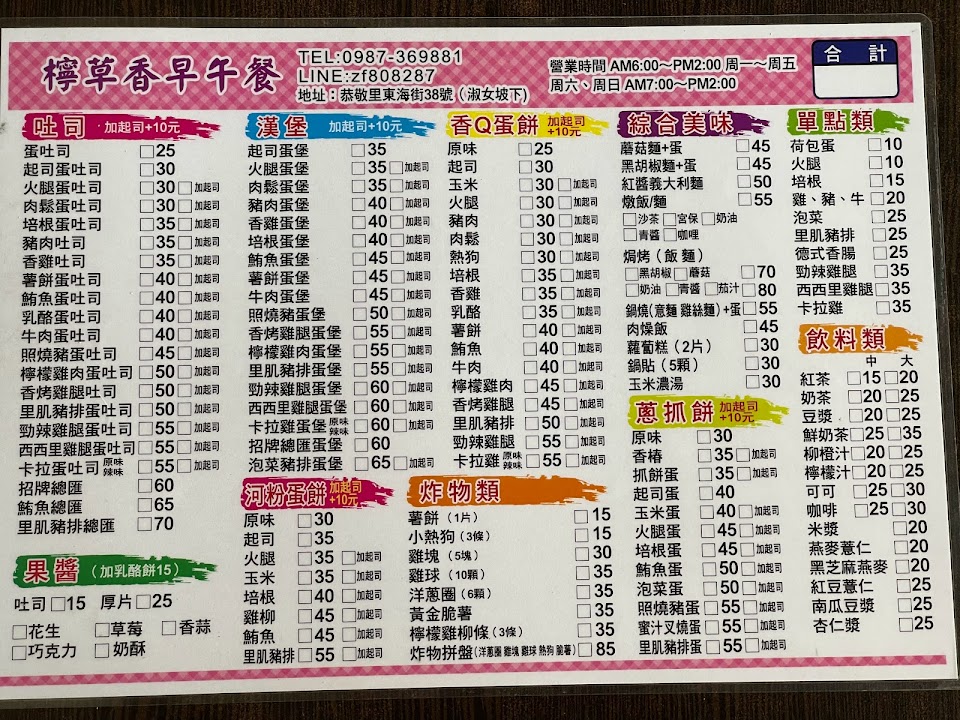 檸草香早午餐
TEL:0987-369881
LINE:zf808287
地址：恭敬里東海街38號（淑女坡下）
營業時間 AM6:00～PM2:00 周一～周五
周六、周日 AM7:00～PM2:00
合計
吐司 加起司+10元
蛋吐司 □25
起司蛋吐司 □30
火腿蛋吐司 □30□加起司
肉鬆蛋吐司 □30□加起司
培根蛋吐司 □35□加起司
豬肉吐司 □35□加起司
香雞吐司 □35□加起司
薯餅蛋吐司 □40□加起司
鮪魚蛋吐司 □40□加起司
乳酪蛋吐司 □40□加起司
牛肉蛋吐司 □40□加起司
照燒豬蛋吐司 □45□加起司
檸檬雞肉蛋吐司 □50□加起司
香烤雞腿吐司 □50□加起司
里肌豬排蛋吐司 □50□加起司
勁辣雞蛋吐司 □55□加起司
西西里雞腿蛋吐司 □55□加起司
卡拉蛋吐司 原味 辣味 □55□加起司
招牌總匯 □60
鮪魚總匯 □65
里肌豬排總匯 □70
果醬（加乳酪餅15）
吐司□15 厚片□25
□花生 □草莓 □香蒜
□巧克力 □奶酥
漢堡 加起司+10元
起司蛋堡 □35
火腿蛋堡 □35□加起司
肉鬆蛋堡 □35□加起司
豬肉蛋堡 □40□加起司
香雞蛋堡 □40□加起司
培根蛋堡 □40□加起司
鮪魚蛋堡 □45□加起司
薯餅蛋堡 □45□加起司
牛肉蛋堡 □45□加起司
照燒豬蛋堡 □50□加起司
香烤雞腿蛋堡 □55□加起司
檸檬雞肉蛋堡 □55□加起司
里肌豬排蛋堡 □55□加起司
勁辣雞腿蛋堡 □60□加起司
西西里雞腿蛋堡 □60□加起司
卡拉雞蛋堡 原味 辣味 □60□加起司
招牌總匯蛋堡 □60
泡菜豬排蛋堡 □65□加起司
河粉蛋餅 加起司+10元
原味 □30
起司 □35
火腿 □35□加起司
玉米 □35□加起司
培根 □40□加起司
雞柳 □45□加起司
鮪魚 □45□加起司
里肌豬排 □55□加起司
香Q蛋餅 加起司+10元
原味 □25
起司 □30
玉米 □30□加起司
火腿 □30□加起司
豬肉 □30□加起司
肉鬆 □30□加起司
熱狗 □30□加起司
培根 □35□加起司
香雞 □35□加起司
乳酪 □35□加起司
薯餅 □40□加起司
鮪魚 □40□加起司
牛肉 □40□加起司
檸檬雞肉 □45□加起司
香烤雞 □45□加起司
里肌豬排 □50□加起司
勁辣雞腿 □55□加起司
卡拉雞 原味 辣味 □55□加起司
炸物類
薯餅（1片） □15
小熱狗（3條） □15
雞塊（5塊） □30
雞球（10顆） □35
洋蔥圈（6顆） □35
黃金脆薯 □35
檸檬雞柳條（3條） □35
炸物拼盤（洋蔥圈 雞塊 雞球 熱狗 脆薯） □85
綜合美味
蘑菇麵+蛋 □45
黑胡椒麵+蛋 □45
紅醬義大利麵 □50
燉飯/麵 □55
□沙茶□宮保□奶油
□青醬□咖哩
焗烤（飯 麵）
□黑胡椒□蘑菇 □70
□奶油□青醬□茄汁□80
鍋燒(意麵 雞絲麵)+蛋□55
肉燥飯 □45
蘿蔔糕（2片） □30
鍋貼（5顆） □30
玉米濃湯 □30
蔥抓餅 加起司+10元
原味 □30
香椿 □35□加起司
抓餅蛋 □35□加起司
起司蛋 □40
玉米蛋 □40□加起司
火腿蛋 □45□加起司
培根蛋 □45□加起司
鮪魚蛋 □50□加起司
泡菜蛋 □50□加起司
照燒豬蛋 □55□加起司
蜜汁叉燒蛋 □55□加起司
里肌豬排蛋 □55□加起司
單點類
荷包蛋 □10
火腿 □10
培根 □15
雞、豬、牛 □20
泡菜 □25
里肌豬排 □25
德式香腸 □25
勁辣雞腿 □35
西西里雞腿 □35
卡拉雞 □35
飲料類
中 大
紅茶 □15□20
奶茶 □20□25
豆漿 □20□25
鮮奶茶□25□35
柳橙汁□20□25
檸檬汁□20□25
可可 □25□30
咖啡 □25□30
米漿 □20
燕麥薏仁 □20
黑芝麻燕麥 □20
紅豆薏仁 □25
南瓜豆漿 □25
杏仁漿 □25